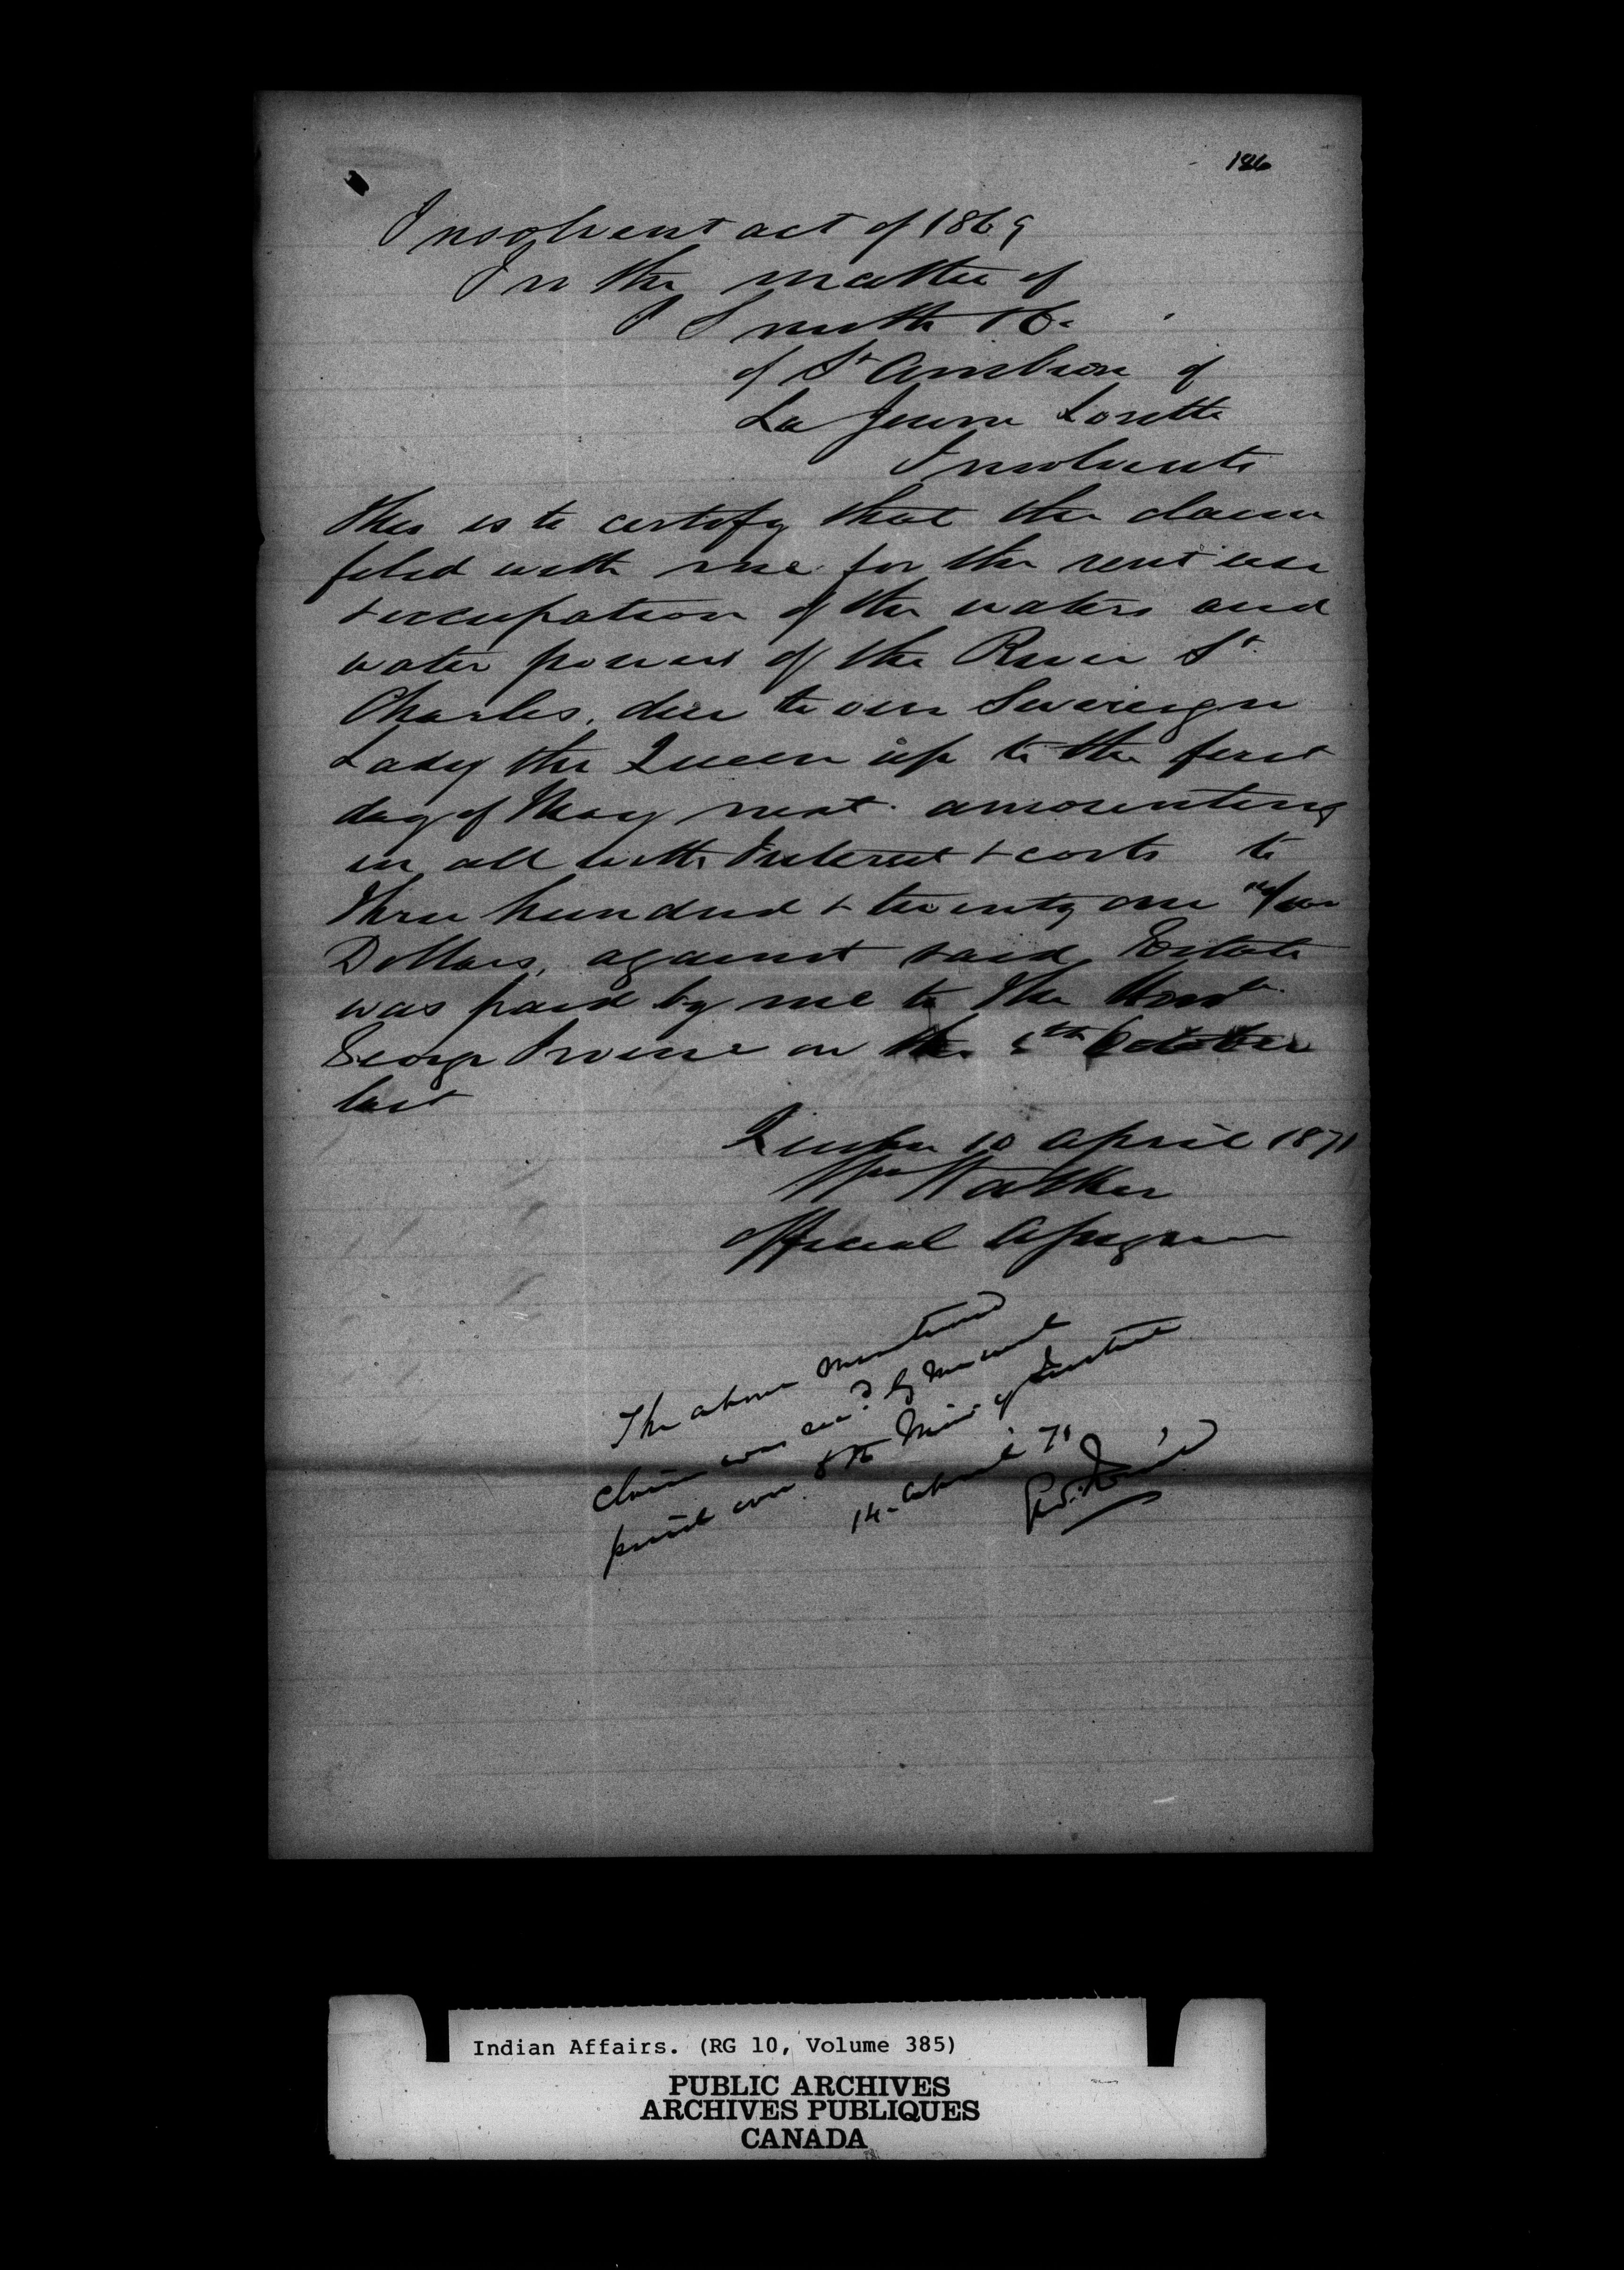 186
Insolvent act of 1869
In the matter of
P Smith & Co
of St Ambroise of
La Jeune Lorette
Insolvents
This is to certify that the claim
filed with me for the rent use
& occupation of the waters and
water powers of the River St
Charles, due to our Sovereign
Lady the Queen up to the first
day of May next amounting
in all with Interest & costs to
Three hundred & twenty one
Dollars, against said Estate
was paid by me to The Honble
George Irvine on the 5th October
last
Quebec 10 April 1871
Wm Walker
Official Assignee
The above mentioned
claim was recd by me and
paid over to the Min: of Justice
14 April 71
G. Irvine
Indian Affairs. (RG 10, Volume 385)
PUBLIC ARCHIVES
ARCHIVES PUBLIQUES
CANADA